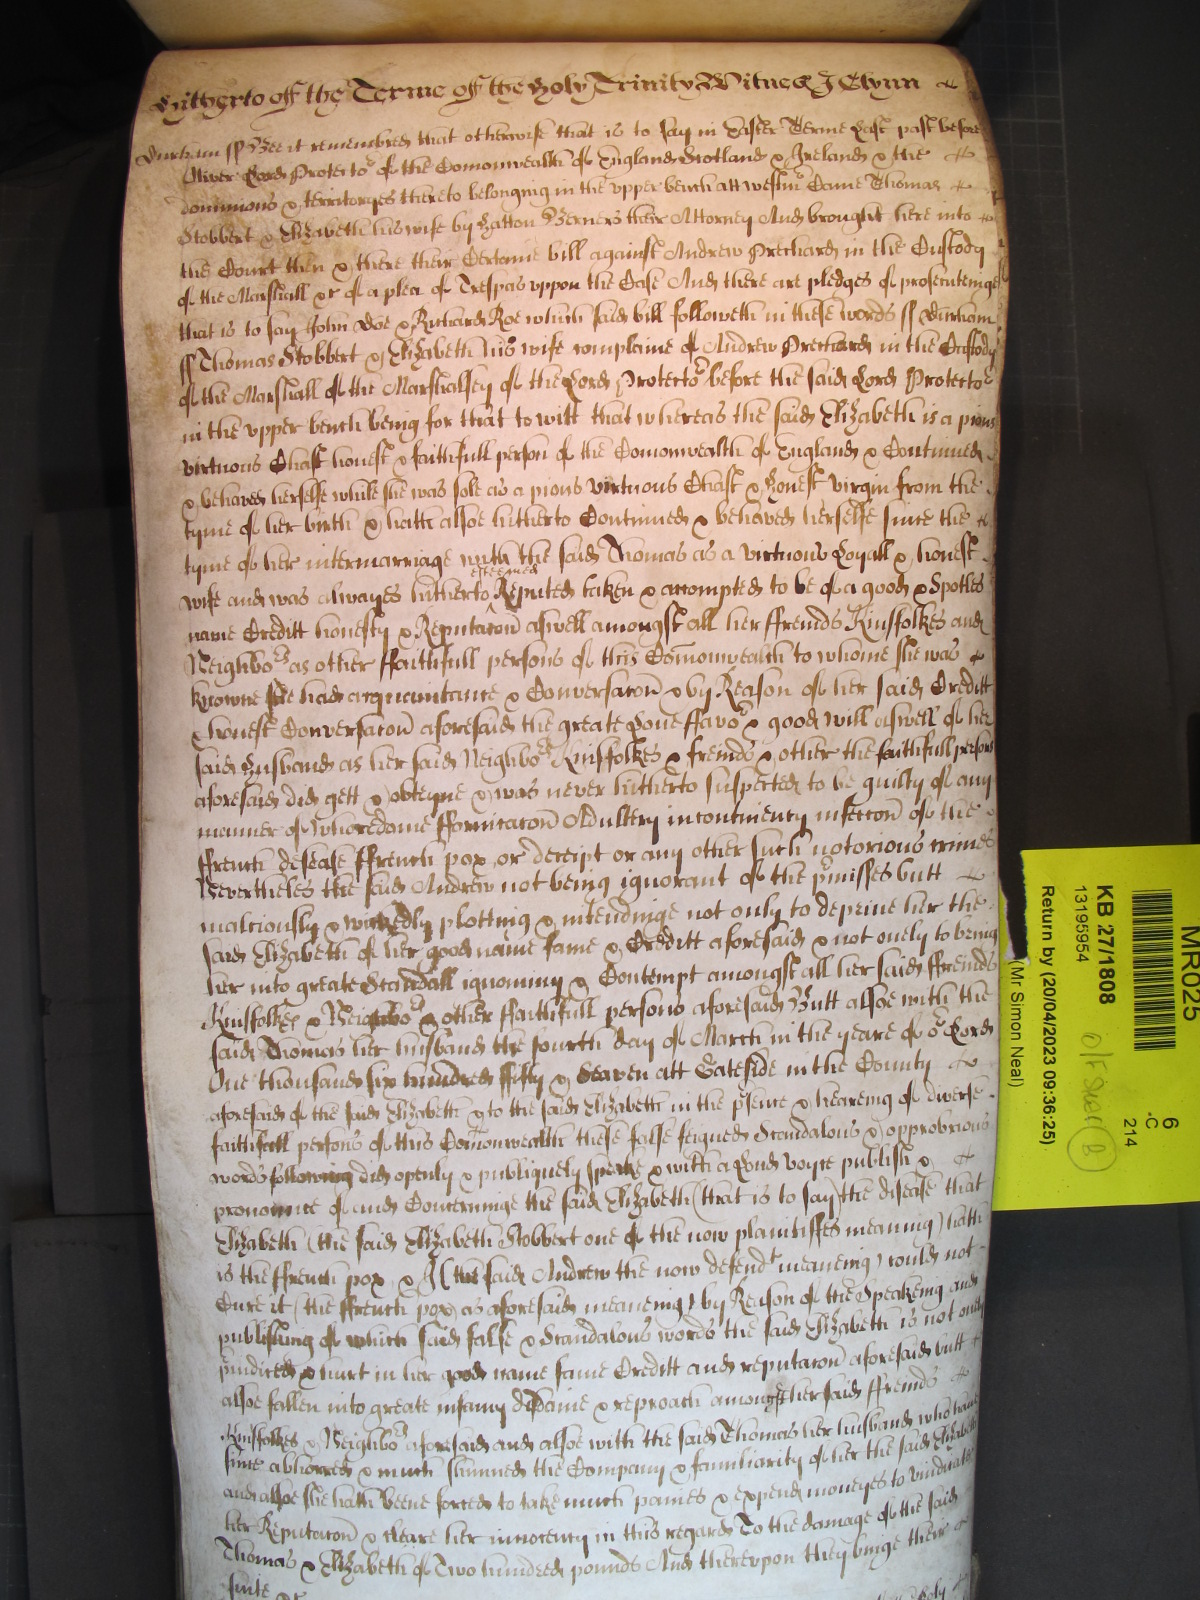 Hitherto off the Terme off the Holy Trinity Witnes J Glynn
Durham ss Bee it remembred that otherwise that is to say in Easter Terme Last past before
Oliver Lord Protector of the Comonwealth of England Scotland & Ireland & the
dominions & territoryes thereto belonging in the vpper bench att Westmr Came Thomas
Stobbert & Elizabeth his wife by Hatton Berners their Attorney And brought here into
the Court then & there their Certeine bill against Andrew Pretchard in the Custody
of the Marshall &c of a plea of Trespas vppon the Case And there are pledges of prosecuteinge
that is to say John Doe & Richard Roe which said bill followeth in these words ss Durham
ss Thomas Stobbert & Elizabeth his wife complaine of Andrew Pretchard in the Custody
of the Marshall of the Marshalsey of the Lord Protector before the said Lord Protector
in the vpper bench being for that to witt that whereas the said Elizabeth is a pious
virtuous Chast honest & faithfull person of the Comonwealth of England & Continued
& behaved herselfe while she was sole as a pious virtuous Chast & Honest virgin from the
tyme of her birth & hath alsoe hitherto Continued & behaved herselfe since the
tyme of her intermarriage with the said Thomas as a virtuous Loyall & honest
wife and was alwayes hitherto esteemed Reputed taken & accompted to be of a good & Spotles
name Creditt honesty & Reputacon aswell amongst all her ffreinds Kinsfolkes and
Neighbors as other ffaithfull persons of this Comonwealth to whome she was
knowne she had acquaintance & Conversacon & by Reason of her said Creditt
& honest Conversacon aforesaid the greate Loue ffavor & good will aswell of her
said Husband as her said Neighbors Kinsfolkes & freinds & other the faithfull persons
aforesaid did gett & obteyne & was never hitherto suspected to be guilty of any
manner of whoredome ffornicacon Adultery incontinency infeccon of the
ffrench desease ffrench pox or deceipt or any other such notorious crimes
Nevertheles the said Andrew not being ignorant of the pmisses butt
maliciously & wickedly plotting & intendinge not only to deprive her the
said Elizabeth of her good name fame & Creditt aforesaid & not onely to bring
her into greate Scandall ignominy & Contempt amongst all her said ffreinds
Kinsfolkes & Neighbors & other ffaithfull persons aforesaid Butt alsoe with the
said Thomas her husband the fourth day of March in the yeare of or Lord
One thousand six hundred fifty & Seaven att Gateside in the County
aforesaid of the said Elizabeth & to the said Elizabeth in the psence & heareing of diverse
faithfull persons of this Comonwealth these false feigned Scandalous & opprobrious
words following did openly & publiquely speake & with a Loud voyce publish &
pronounce of and Concerninge the said Elizabeth (that is to say) the disease that
Elizabeth (the said Elizabeth Stobbert one of the now plaintiffes meaning) hath
is the ffrench pox & I (the said Andrew the now defendt meaneing) could not
Cure it (the ffrench pox as aforesaid meaneing) by Reason of the Speakeing and
publishing of which said false & Scandalous words the said Elizabeth is not only
preiudiced & hurt in her good name fame Creditt and reputacon aforesaid butt
alsoe fallen into greate infamy disdaine & reproach amongst her said ffreinds
Kinsfolkes & Neighbors aforesaid and alsoe with the said Thomas her husband who have
since abhorred & much shunned the Company & familiarity of her the said Elizabeth
and alsoe she hath beene forced to take much paines & expend moneyes to vindicate
her Reputacon & cleare her innocency in this regard To the damage of the said
Thomas & Elizabeth of Two hundred pounds And therevpon they bringe their
suite &c
MR025
6
-C
214
KB 27/1808
13195954
Return by (20/04/2023 09:36:25)
(Mr Simon Neal)